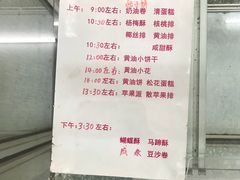 上午: 9:00左右: 奶油卷 清蛋糕
10:30左右: 杨梅酥 核桃排
椰丝排 黄油排
10:30左右: 咸甜酥
12:00左右: 黄油小饼干
14:00左右: 黄油小花
16:00左右: 黄油饼 松花蛋糕
13:30左右: 苹果派 散苹果排
下午: 3:30左右:
蝴蝶酥 马蹄酥
豆沙卷